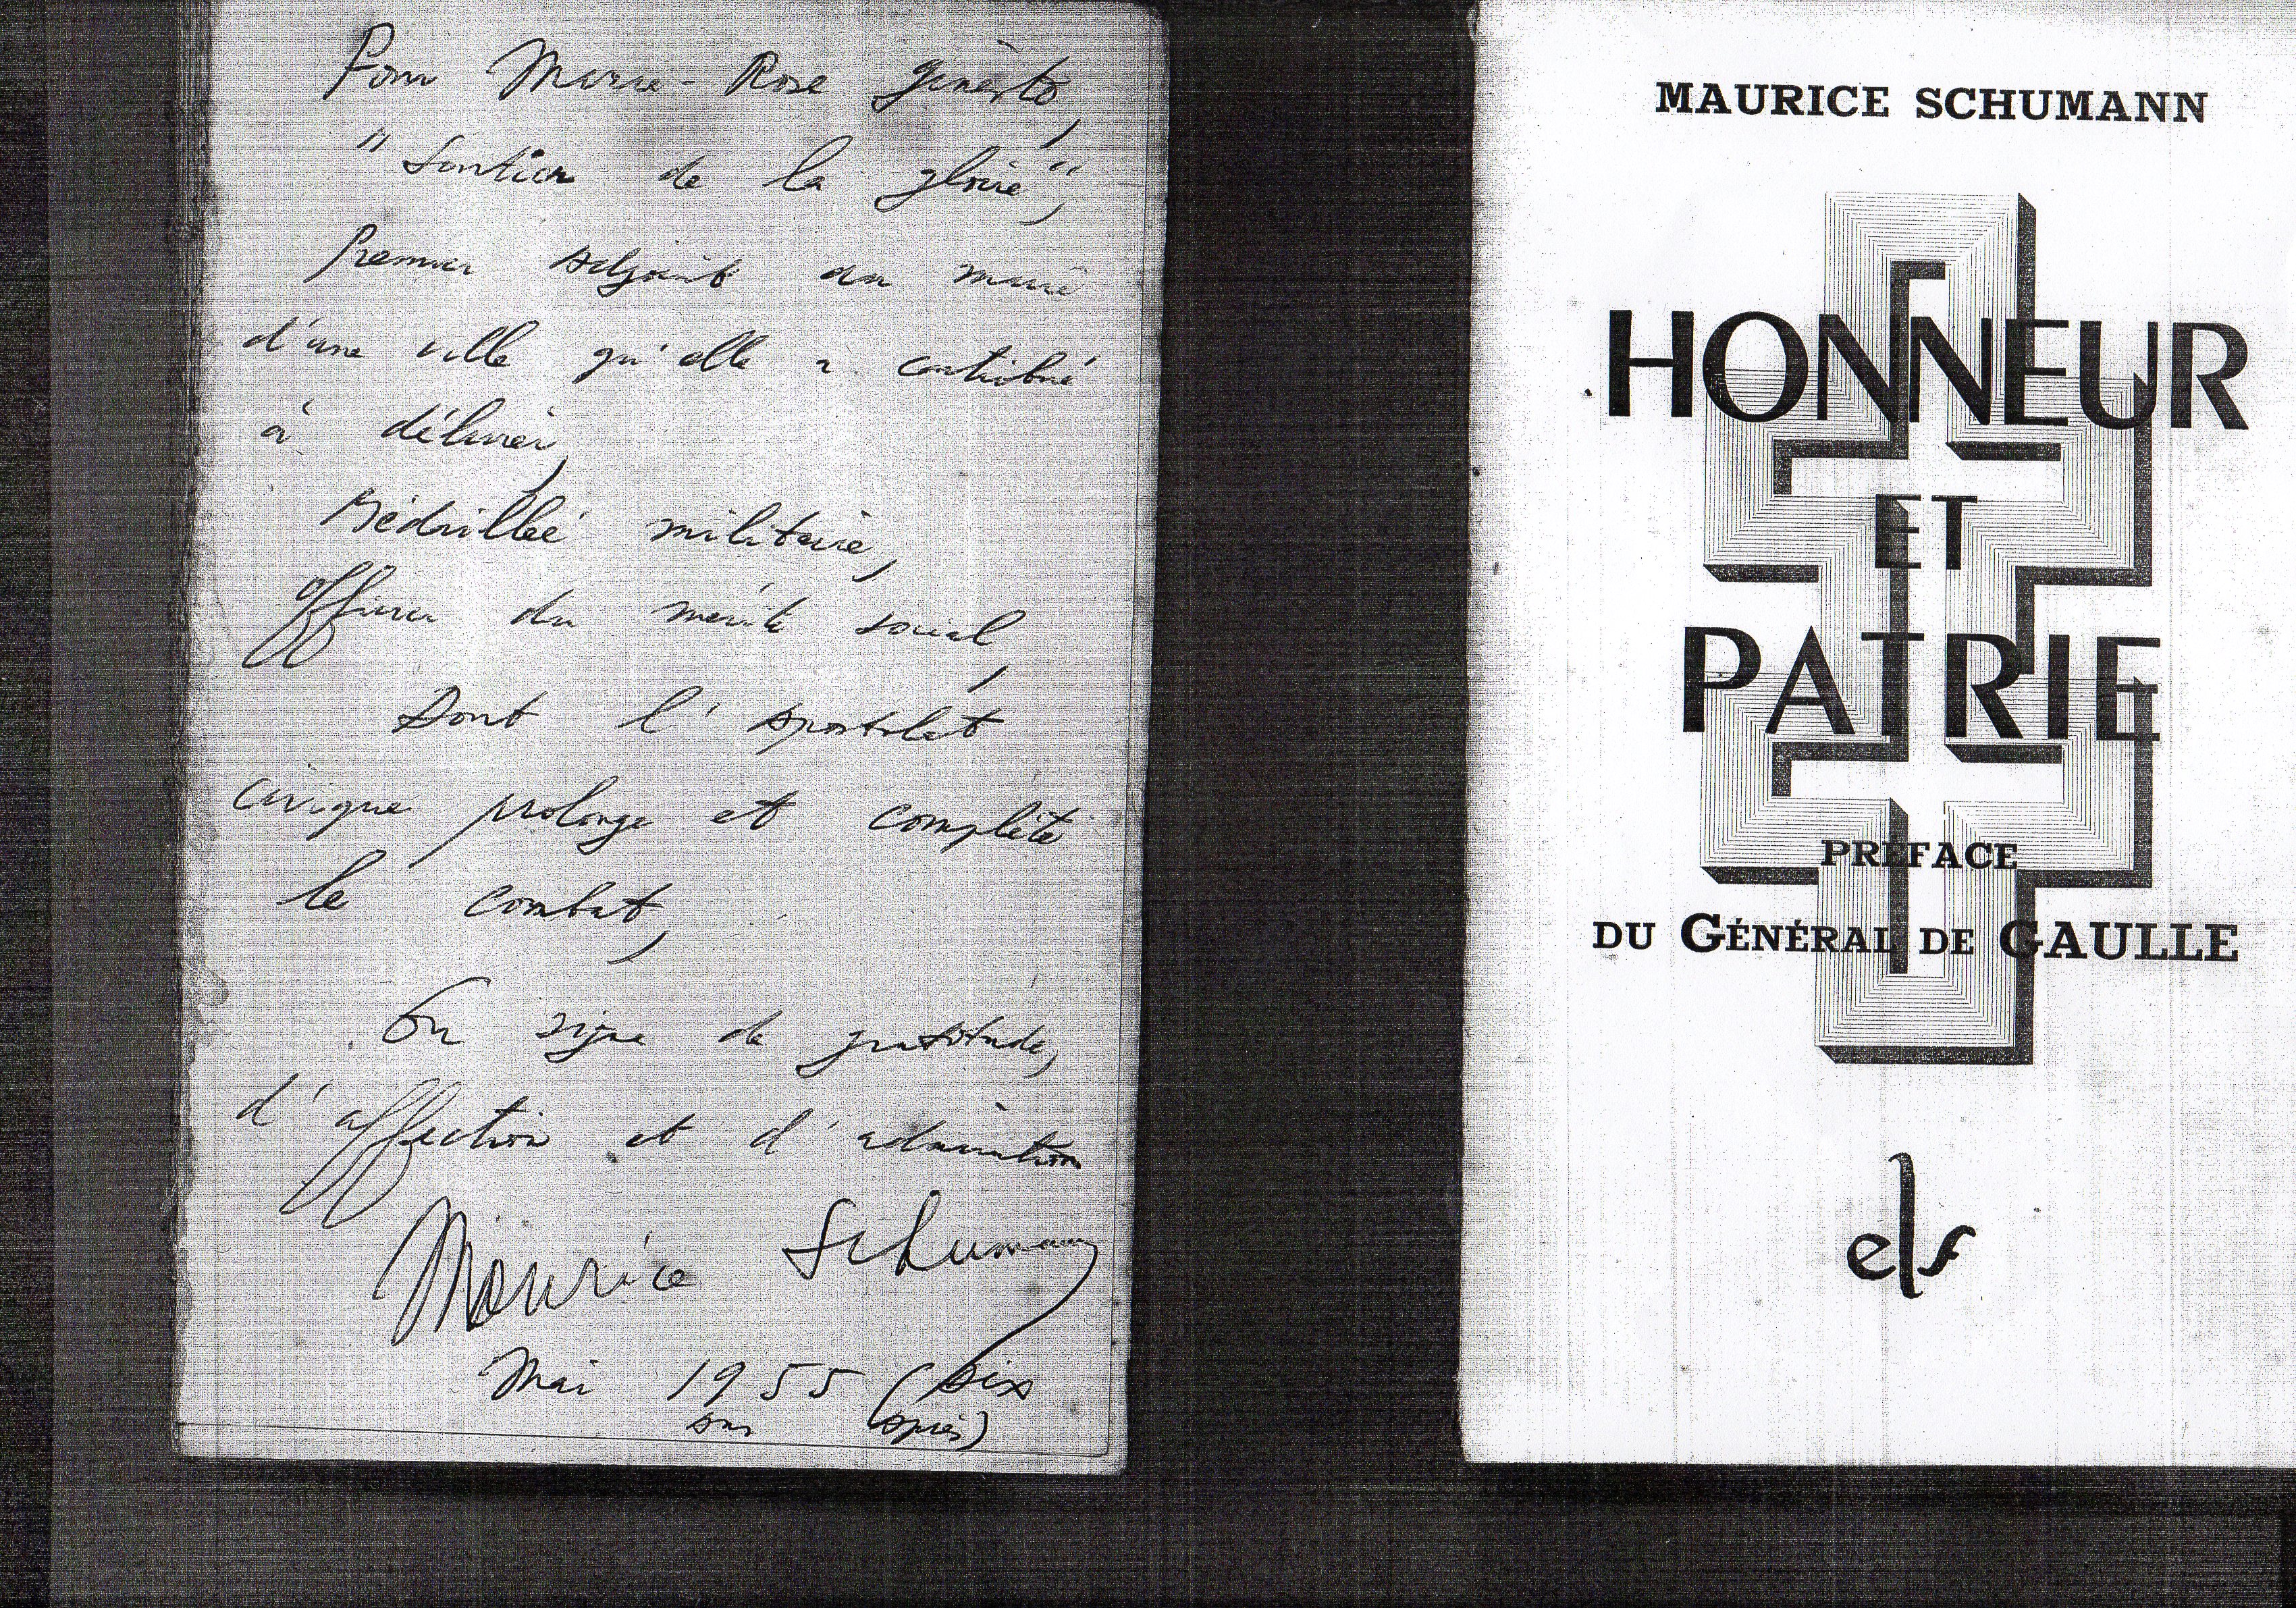 Pour Marie-Rose Ginésto,
"Soutier de la gloire",
Premier adjoint au maire
d'une ville qu'elle a contribué
à délivrer,
Médaillée militaire,
officier du mérite social,
Dont l'apostolat
civique prolonge et complète
le combat,
En signe de gratitude,
d'affection et d'admiration
Maurice Schumann
Mai 1955 (dix
ans après)
MAURICE SCHUMANN
HONNEUR
ET
PATRIE
PRÉFACE
DU GÉNÉRAL DE GAULLE
elf